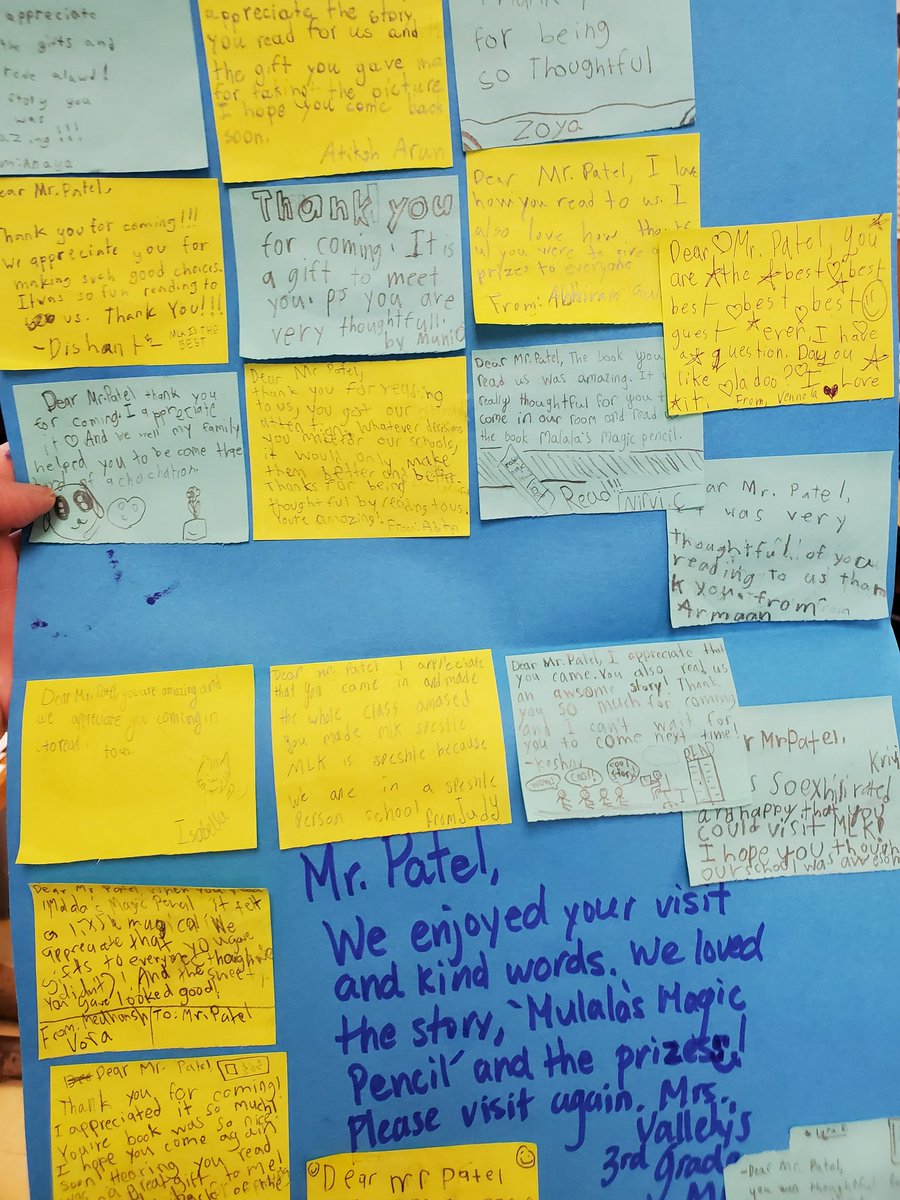 appreciate
the gifts and
story you
was
appreciate the story
you read for us and
the gift you gave me
for taking the picture
I hope you come back
soon.
Atiksh Arun
for being
so Thoughtful
ZOYA
Dear Mr. Patel,
Thank you for coming!!!
We appreciate you for
making such good choices.
It was so fun reading to
us. Thank You!!!
-Dishant-
MLK IS THE
BEST
Thank you
for coming. It is
a gift to meet
you. ps you are
very thoughtfull.
by
Dear Mr. Patel, I love
how you read to us. I
also love how
ul you were to give
prizes to everyone
From: Abhiram
Dear Mr. Patel, you
are the best best
best best best
guest ever, I have
a question. Do you
like ladoo? I Love
it.
From, Vennela
Dear Mr.Patel thank you
for coming. I appreciate
it And we well my family
helped you to be come the
of a
Dear Mr Patel,
thank you for reading
to us, you got our
attention, whatever decisions
you make for our schools,
it would only make
them better and better.
Thanks for being
thoughtful by reading to us.
You're amazing.
From:
Dear Mr.Patel, The book you
read us was amazing. It
really thoughtful for you
come in our room and read
the book Malala's Magic pencil.
Read!!!
Nirvi.C
ar Mr. Patel,
was very
thoughtful! of you
reading to us than
k you. from
Armaan
Dear Mr. Patel, you are amazing and
we appreciate you comiing in
to read
to us.
Isabella
Dear mr. Patel I appreciate
that you came in and made
the whole class amased
you made MLK speshle
MLK is speshle because
we are in a speshle
Person school from Judy
Dear Mr.Patel, I appreciate that
you came. You also read us
an awsome story! Thank
you SO much for coming
and I can't wait for
you to come next time!
-Keshav
wow!
cool!
cool story
READ
r Mr Patel,
So exhilirated
and happy that you
could visit MLK!
I hope you though
our school was awesom
Dear Mr Patel when you
Magic Pencil it felt
magical! We
appreciate that you gave
gifts to everyone
didn't)! And the sweet
you gave looked good!
From: Medhansh
Vora
To: Mr. Patel
Mr. Patel,
We enjoyed your visit
and kind words. We loved
the story, "Mulala's Magic
Pencil" and the prizes!
Please visit again. Mrs.
Valleły's
3rd Grade
Dear Mr. Patel
Thank you for coming!
I appreciated it so much!
You're book was so nice!
I hope you come again
soon! Hearing you read
was a great gift to me!
back of the
Dear mr Patel
-Dear Mr. Patel,
you was thoughtful